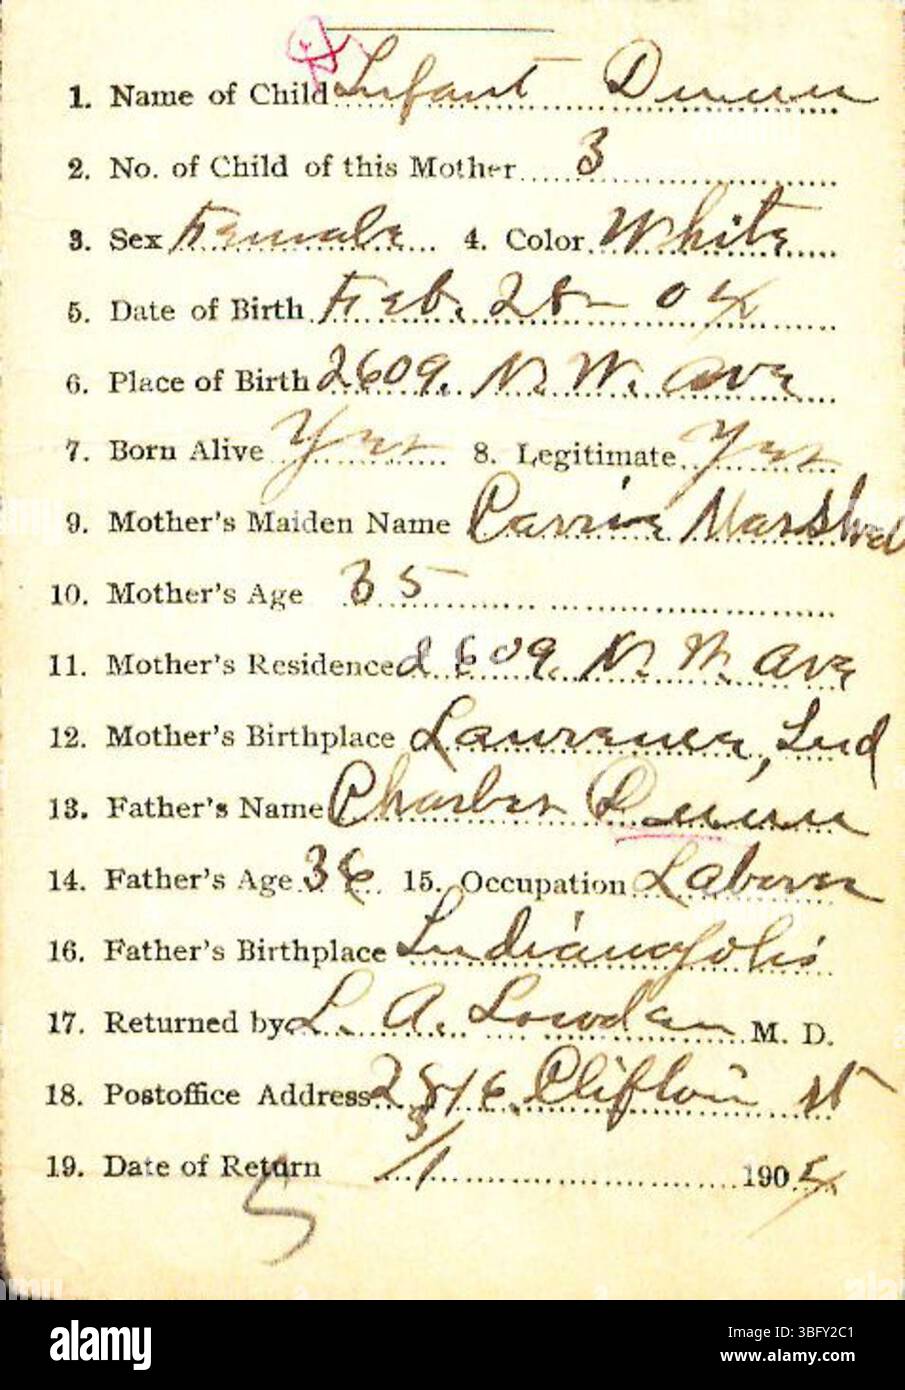 1. Name of Child Infant Dunn
2. No. of Child of this Mother 3
3. Sex Female 4. Color White
5. Date of Birth Feb. 28 - 04
6. Place of Birth 2609. N. W. Ave
7. Born Alive Yes 8. Legitimate Yes
9. Mother's Maiden Name Carrie
10. Mother's Age 35
11. Mother's Residence 2609. N. W. Ave
12. Mother's Birthplace Lawrence, Ind
13. Father's Name Charles Dunn
14. Father's Age 36 15. Occupation Laborer
16. Father's Birthplace Indianapolis
17. Returned by L. A. Lowden M. D.
18. Postoffice Address 2816 Clifton St
19. Date of Return 3/1 1904
5
alamy
Image ID: 3BFY2C1
www.alamy.com